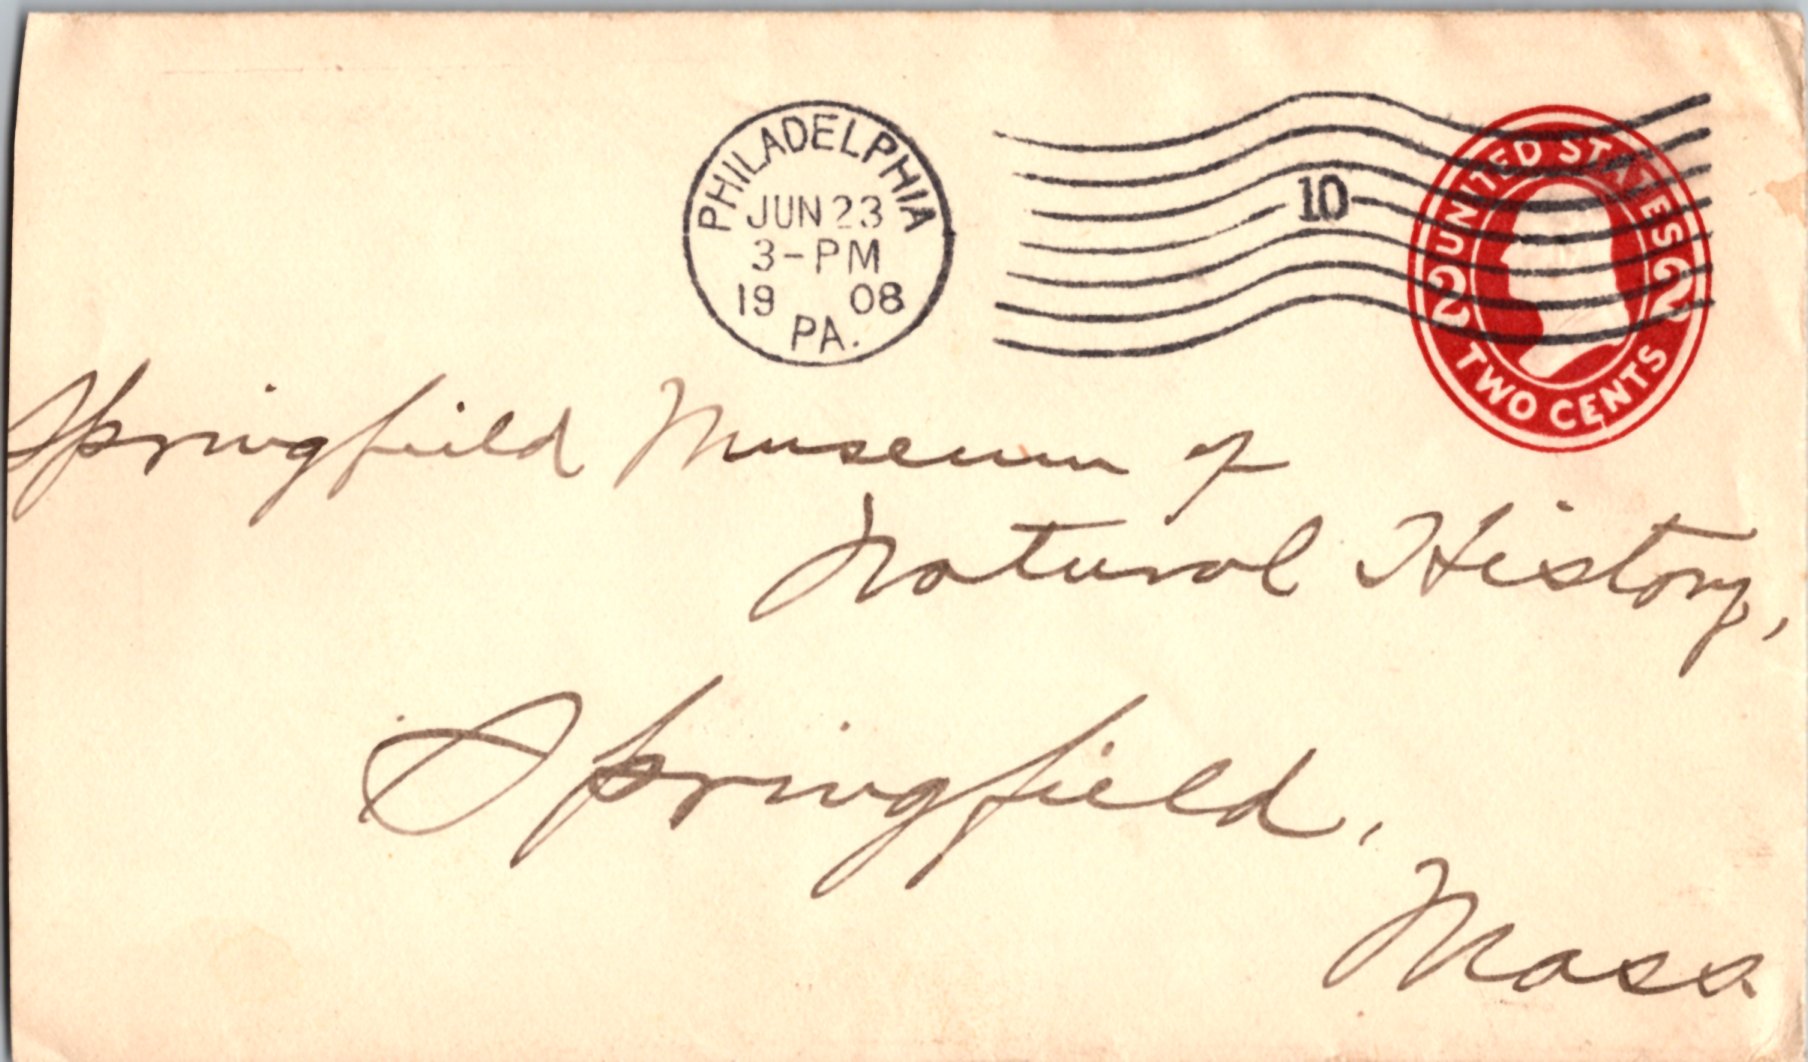 PHILADELPHIA
JUN 23
3-PM
19 08
PA.
10
UNITED STATES
2 2
TWO CENTS
Springfield Museum of
Natural History,
Springfield,
Mass